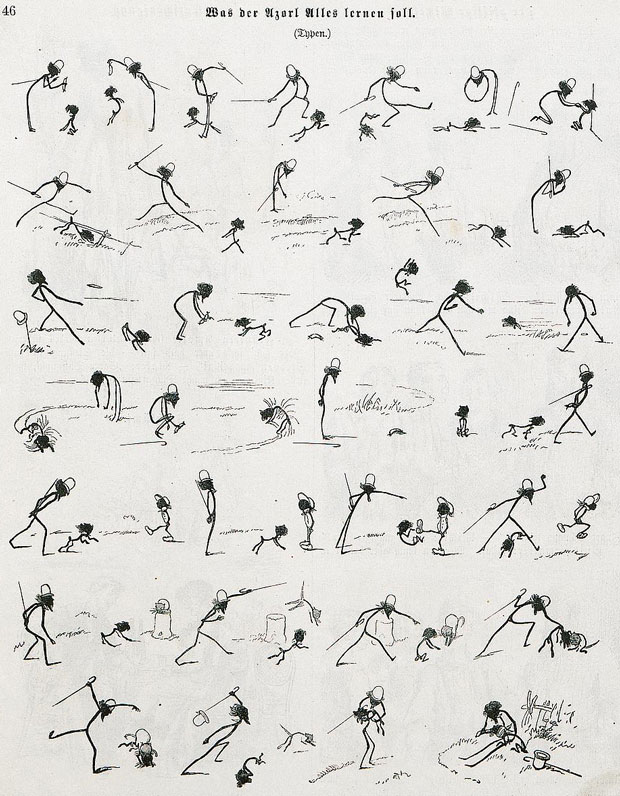 46
Was der Azorl Alles lernen soll.
(Typen.)